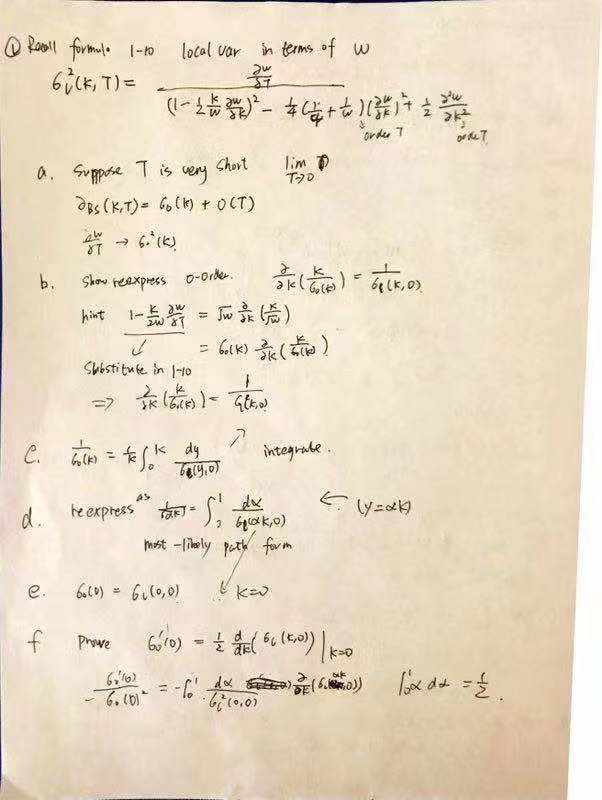 ① Recall formula 1-10 local var in terms of w
σ_l²(K,T) = (∂w/∂T) / ((1 - 1/2 K/w ∂w/∂K)² - 1/4 (1/4 + 1/w)(∂w/∂K)² + 1/2 ∂²w/∂K²)
order T
order T
a. Suppose T is very short lim T→0
∂BS(K,T) = σ₀(K) + O(T)
∂w/∂T → σ₀²(K)
b. Show reexpress 0-order. ∂/∂K (K/σ₀(K)) = 1/σ_l(K,0)
hint 1 - K/2w ∂w/∂T = √w ∂/∂K (K/√w)
= σ₀(K) ∂/∂K (K/σ₀(K))
Substitute in 1-10
⇒ ∂/∂K (K/σ₀(K)) = 1/σ_l(K,0)
c. 1/σ₀(K) = 1/K ∫₀ᴷ dy/σ_l(y,0) integrate.
d. reexpress as = ∫ dα/σ_l(αK,0) ← (y=αK)
most-likely path form
e. σ₀(0) = σ_l(0,0) K=0
f Prove σ₀'(0) = 1/2 d/dK (σ_l(K,0)) |K=0
- σ₀'(0)/σ₀(0)² = -∫₀¹ dα/σ_l²(0,0) ∂/∂K ∫₀¹ α dα = 1/2.